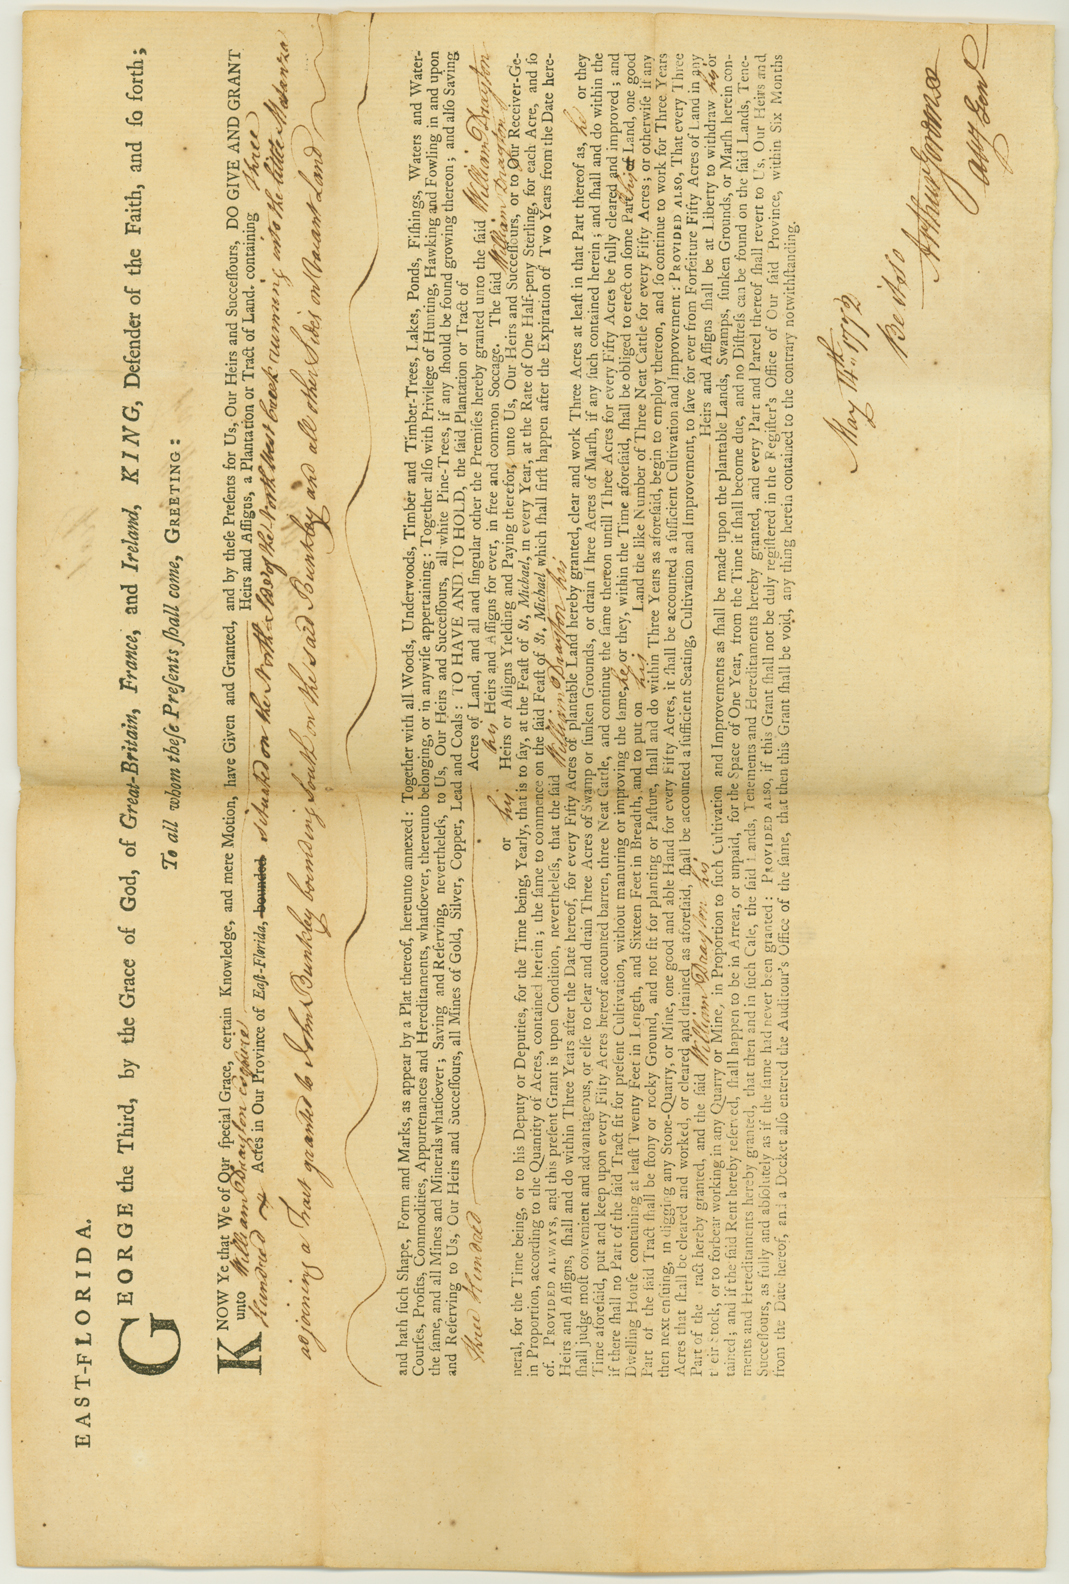 EAST-FLORIDA.
GEORGE the Third, by the Grace of God, of Great-Britain, France, and Ireland, KING, Defender of the Faith, and ſo forth;
To all whom theſe Preſents ſhall come, GREETING:
KNOW Ye that We of Our ſpecial Grace, certain Knowledge, and mere Motion, have Given and Granted, and by theſe Preſents for Us, Our Heirs and Succeſſours, DO GIVE AND GRANT
unto William Drayton esquire Heirs and Aſſigns, a Plantation or Tract of Land. containing three
Hundred Acres in Our Province of Eaſt-Florida, bounded situated on the North side of the North West creek running into the little Matanza
adjoining a Tract granted to John Bunkley bounding South on the said Bunkley and all other Sides on Vacant Land
and hath ſuch Shape, Form and Marks, as appear by a Plat thereof, hereunto annexed: Together with all Woods, Underwoods, Timber and Timber-Trees, Lakes, Ponds, Fiſhings, Waters and Water-
Courſes, Profits, Commodities, Appurtenances and Hereditaments, whatſoever, thereunto belonging, or in anywiſe appertaining: Together alſo with Privilege of Hunting, Hawking and Fowling in and upon
the ſame, and all Mines and Minerals whatſoever; Saving and Reſerving, nevertheleſs, to Us, Our Heirs and Succeſſours, all white Pine-Trees, if any ſhould be found growing thereon; and alſo Saving
and Reſerving to Us, Our Heirs and Succeſſours, all Mines of Gold, Silver, Copper, Lead and Coals: TO HAVE AND TO HOLD, the ſaid Plantation or Tract of
three Hundred Acres of Land, and all and ſingular other the Premiſes hereby granted unto the ſaid William Drayton
his Heirs and Aſſigns for ever, in free and common Soccage. The ſaid William Drayton
or his Heirs or Aſſigns Yielding and Paying therefor, unto Us, Our Heirs and Succeſſours, or to Our Receiver-Ge-
neral, for the Time being, or to his Deputy or Deputies, for the Time being, Yearly, that is to ſay, at the Feaſt of St. Michael, in every Year, at the Rate of One Half-peny Sterling, for each Acre, and ſo
in Proportion, according to the Quantity of Acres, contained herein; the ſame to commence on the ſaid Feaſt of St. Michael which ſhall firſt happen after the Expiration of Two Years from the Date here-
of. PROVIDED ALWAYS, and this preſent Grant is upon Condition, nevertheleſs, that the ſaid William Drayton his
Heirs and Aſſigns, ſhall and do within Three Years after the Date hereof, for every Fifty Acres of plantable Land hereby granted, clear and work Three Acres at leaſt in that Part thereof as, he or they
ſhall judge moſt convenient and advantageous, or elſe to clear and drain Three Acres of Swamp or ſunken Grounds, or drain Three Acres of Marſh, if any ſuch contained herein; and ſhall and do within the
Time aforeſaid, put and keep upon every Fifty Acres hereof accounted barren, three Neat Cattle, and continue the ſame thereon untill Three Acres for every Fifty Acres be fully cleared and improved; and
if there ſhall no Part of the ſaid Tract fit for preſent Cultivation, without manuring or improving the ſame, he or they, within the Time aforeſaid, ſhall be obliged to erect on ſome Part of his Land, one good
Dwelling Houſe containing at leaſt Twenty Feet in Length, and Sixteen Feet in Breadth, and to put on his Land the like Number of Three Neat Cattle for every Fifty Acres; or otherwiſe if any
Part of the ſaid Tract ſhall be ſtony or rocky Ground, and not fit for planting or Paſture, ſhall and do within Three Years as aforeſaid, begin to employ thereon, and ſo continue to work for Three Years
then next enſuing, in digging any Stone-Quarry, or Mine, one good and able Hand for every Fifty Acres, it ſhall be accounted a ſufficient Cultivation and Improvement: PROVIDED ALSO, That every Three
Acres that ſhall be cleared and worked, or cleared and drained, as aforeſaid, ſhall be accounted a ſufficient Seating, Cultivation and Improvement, to ſave for ever from Forfeiture Fifty Acres of Land in any
Part of the Tract hereby granted, and the ſaid William Drayton his Heirs and Aſſigns ſhall be at Liberty to withdraw his or
their Stock, or to forbear working in any Quarry or Mine, in Proportion to ſuch Cultivation and Improvements as ſhall be made upon the plantable Lands, Swamps, ſunken Grounds, or Marſh herein con-
tained; and if the ſaid Rent hereby reſerved, ſhall happen to be in Arrear, or unpaid, for the Space of One Year, from the Time it ſhall become due, and no Diſtreſs can be found on the ſaid Lands, Tene-
ments and Hereditaments hereby granted, that then and in ſuch Caſe, the ſaid Lands, Tenements and Hereditaments hereby granted, and every Part and Parcel thereof ſhall revert to Us, Our Heirs and
Succeſſours, as fully and abſolutely as if the ſame had never been granted: PROVIDED ALSO, if this Grant ſhall not be duly regiſtered in the Regiſter's Office of Our ſaid Province, within Six Months
from the Date hereof, and a Docket alſo entered the Auditour's Office of the ſame, that then this Grant ſhall be void, any thing herein contained to the contrary notwithſtanding.
May 14th 1772
Be it so
Arthur Gordon
Atty Genl